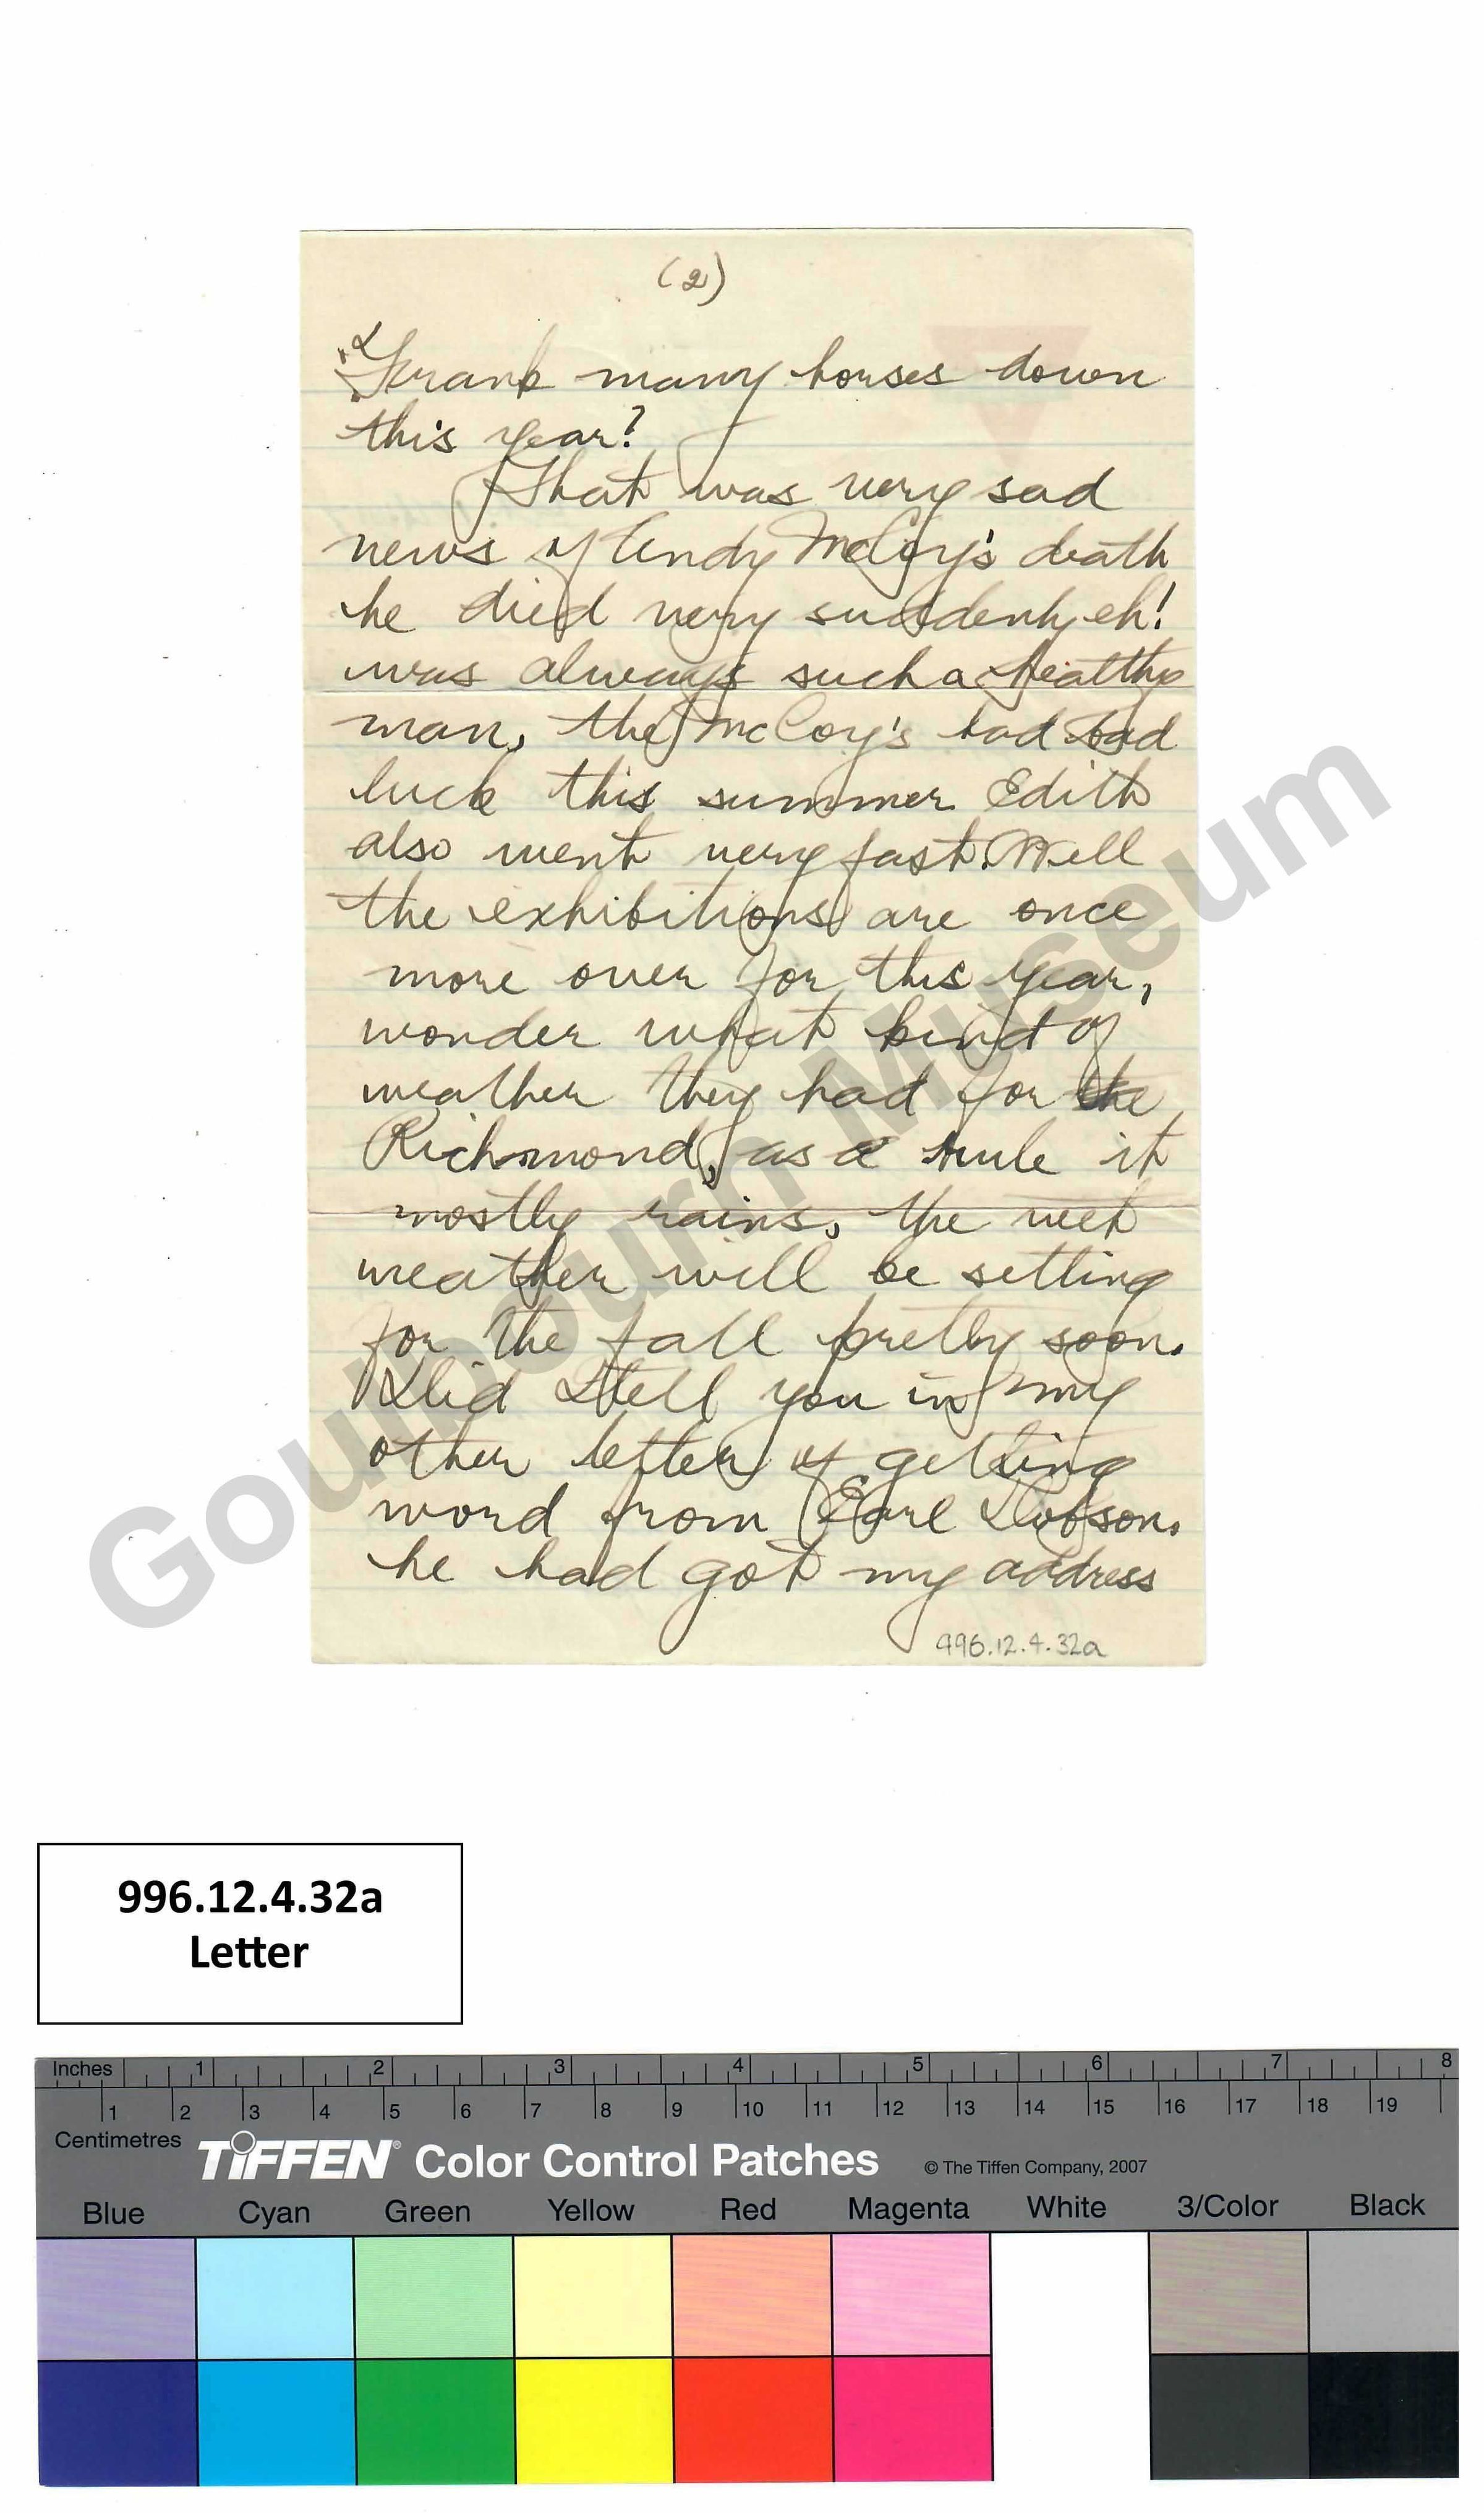 (2)
Frank many horses down
this year?
That was very sad
news of Andy McCoy's death
he died very suddenly eh!
was always such a healthy
man, the McCoy's had bad
luck this summer Edith
also went very fast. Well
the exhibitions are once
more over for this year,
wonder what kind of
weather they had for the
Richmond, as a rule it
mostly rains, the wet
weather will be setting
for the fall pretty soon.
Did I tell you in my
other letter of getting
word from Earl Hobson.
he had got my address
996.12.4.32a
Goulbourn Museum
996.12.4.32a
Letter
Inches 1 2 3 4 5 6 7 8
1 2 3 4 5 6 7 8 9 10 11 12 13 14 15 16 17 18 19
Centimetres
TIFFEN® Color Control Patches © The Tiffen Company, 2007
Blue Cyan Green Yellow Red Magenta White 3/Color Black